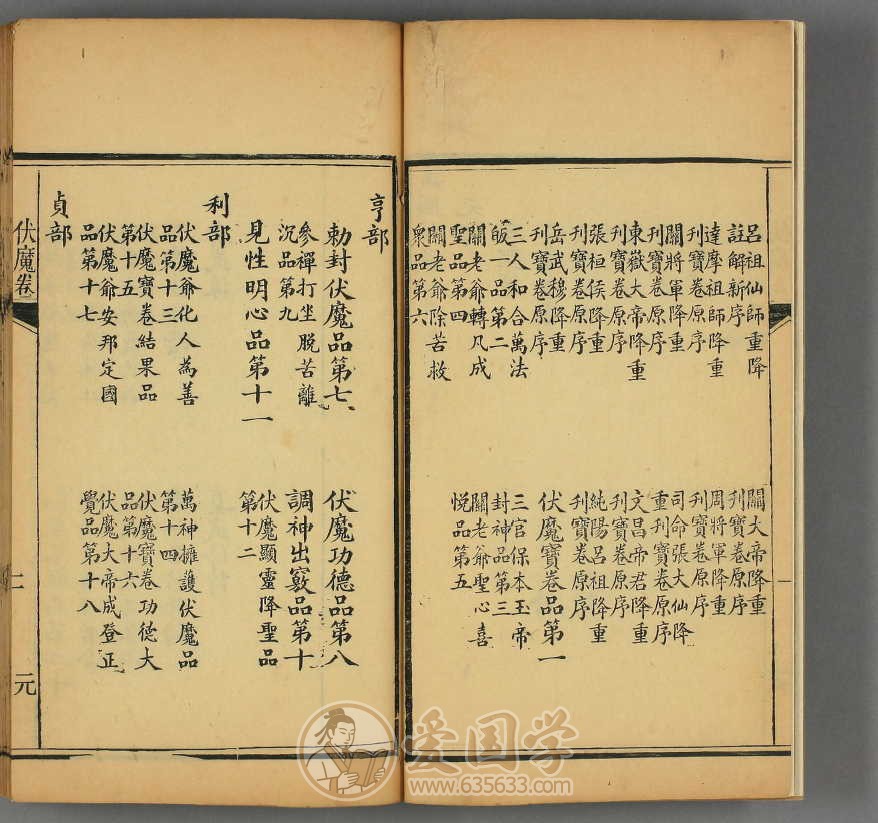 呂祖仙師重降
註解新序
關大帝降重
刊寶卷原序
達摩祖師降重
刊寶卷原序
周將軍降重
刊寶卷原序
關將軍降重
刊寶卷原序
司命張大仙降
重刊寶卷原序
東嶽大帝降重
刊寶卷原序
文昌帝君降重
刊寶卷原序
張桓侯降重
刊寶卷原序
純陽呂祖降重
刊寶卷原序
岳武穆降重
刊寶卷原序
伏魔寶卷品第一
三人和合萬法
皈一品第二
三官保本玉帝
封神品第三
關老爺轉凡成
聖品第四
關老爺聖心喜
悅品第五
關老爺除苦救
衆品第六
亨部
勅封伏魔品第七
伏魔功德品第八
參禪打坐脫苦離
沉品第九
調神出竅品第十
見性明心品第十一
伏魔顯靈降聖品
第十二
利部
伏魔爺化人為善
品第十三
萬神擁護伏魔品
第十四
伏魔寶卷結果品
第十五
伏魔寶卷功德大
品第十六
伏魔爺安邦定國
品第十七
伏魔大帝成登正
覺品第十八
貞部
伏魔卷
二
元
爱国学
www.635633.com